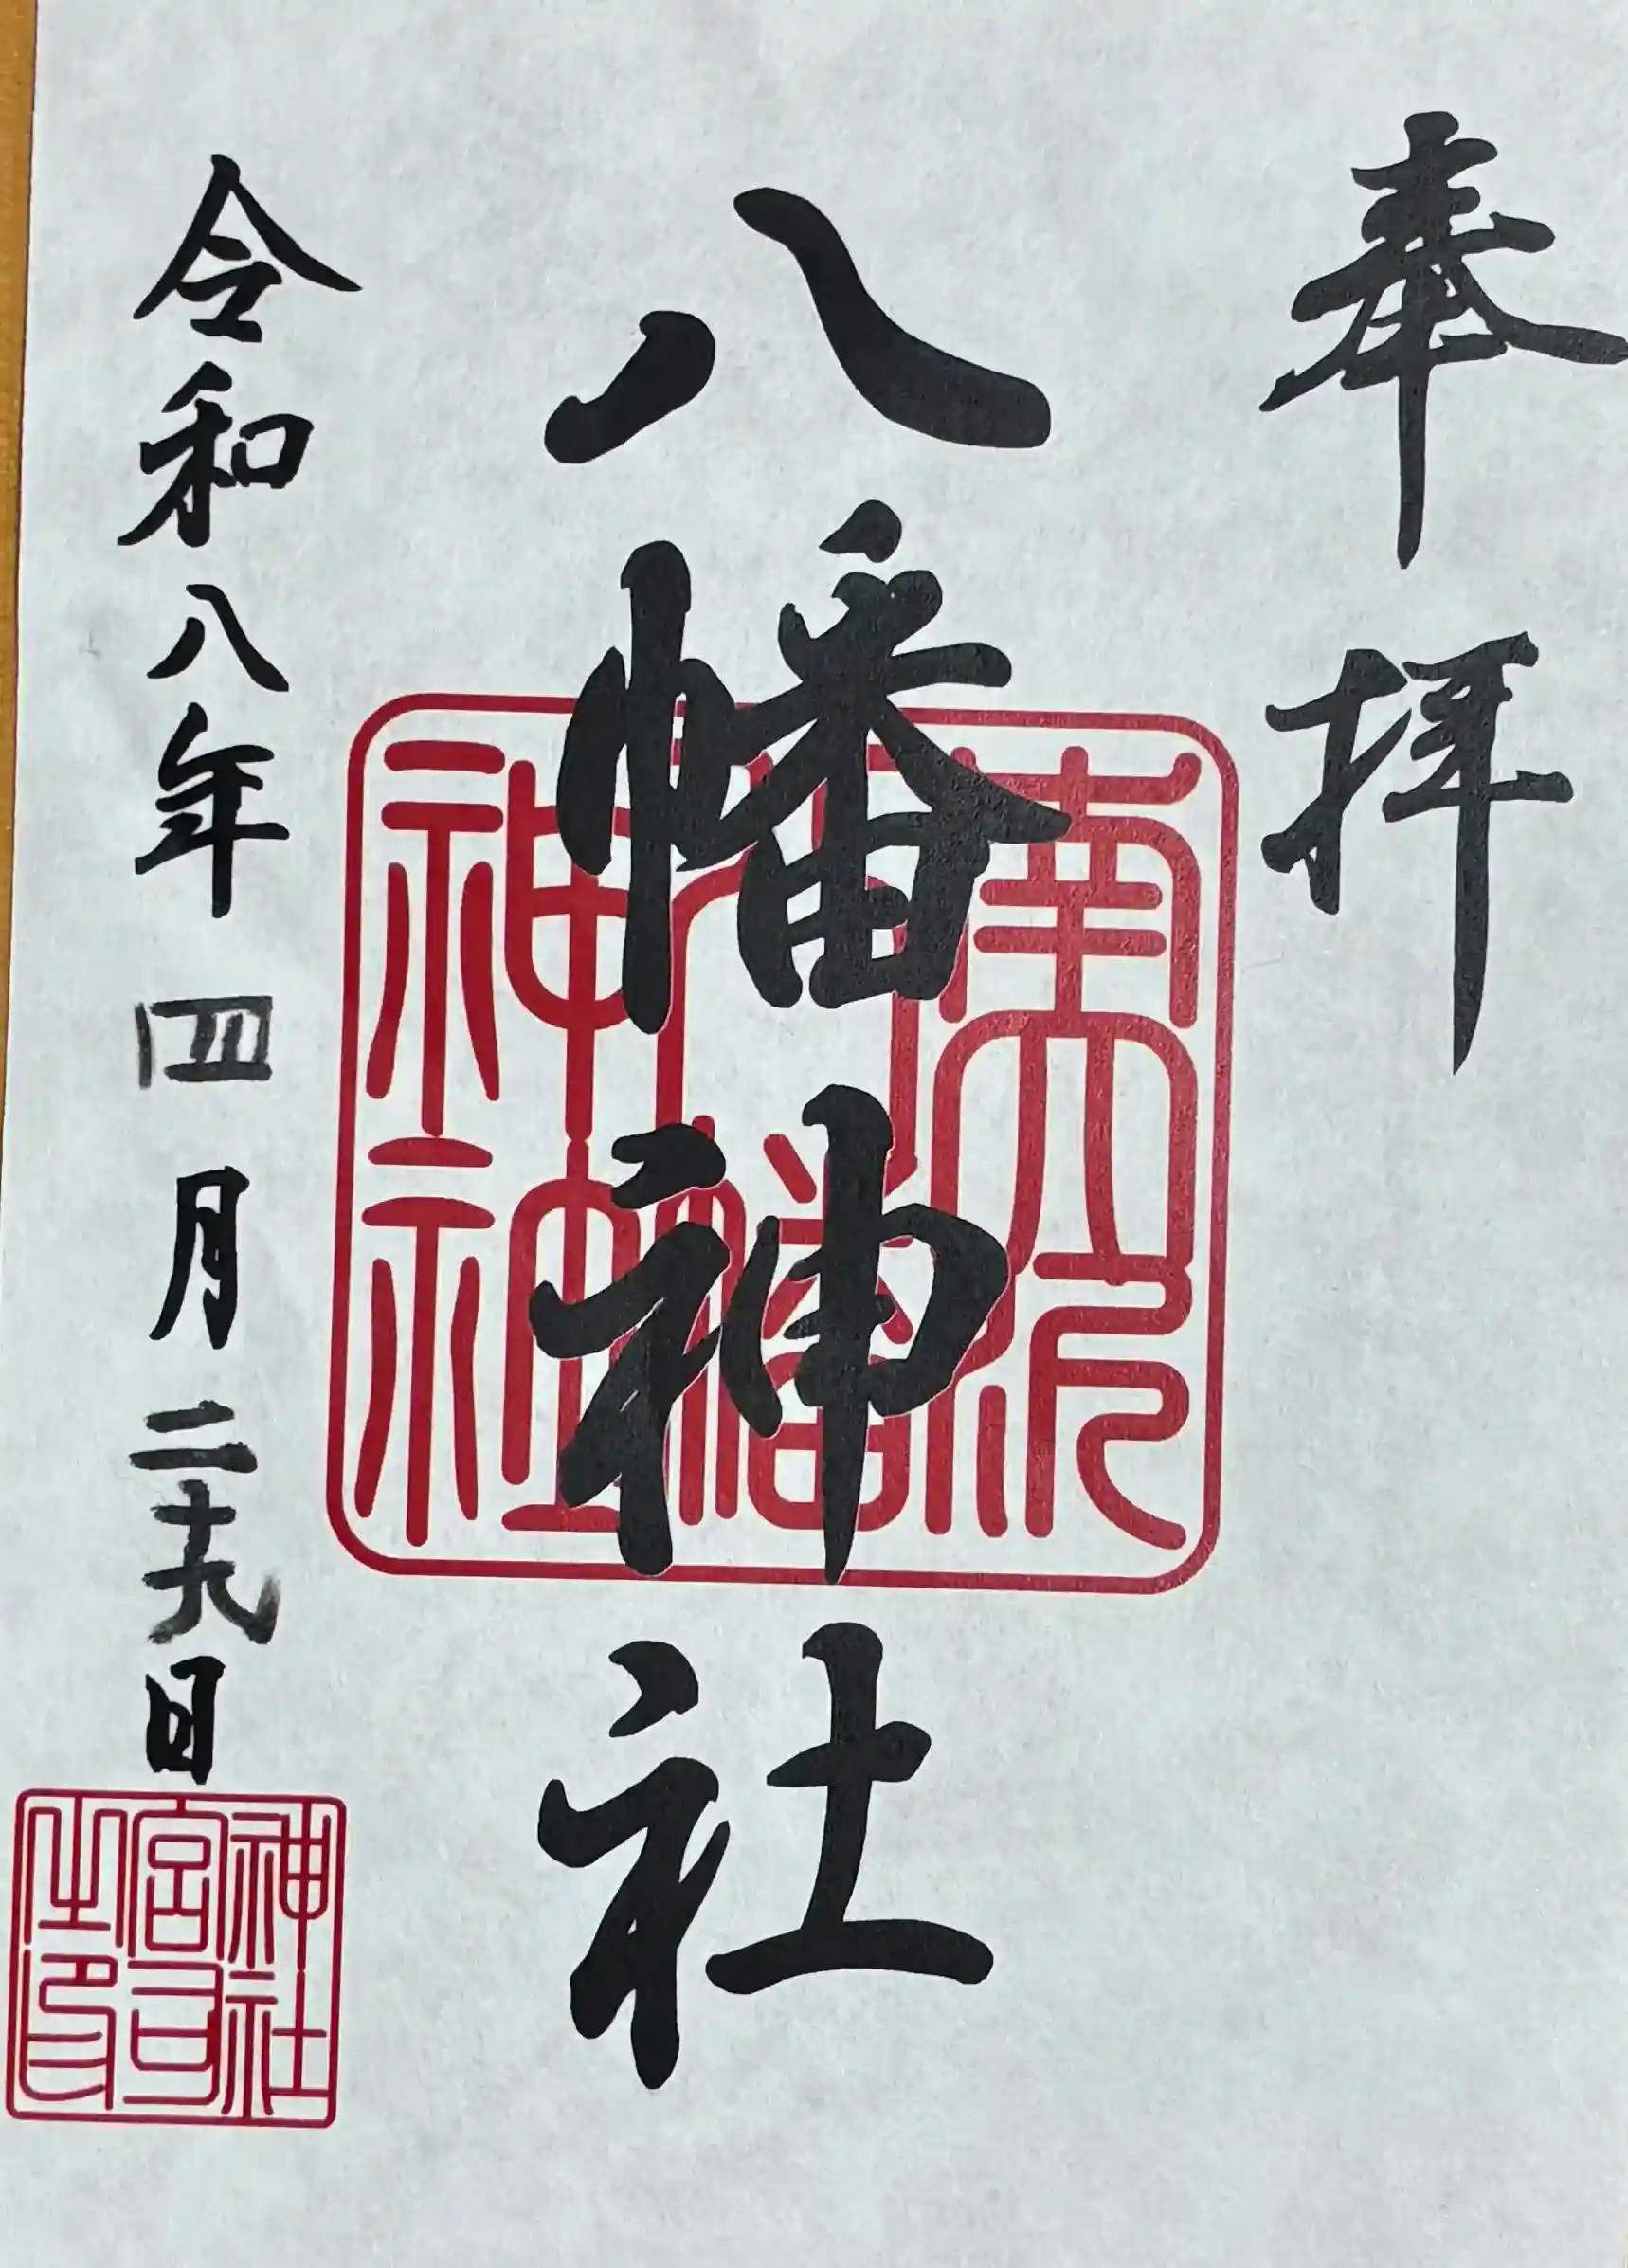 奉拝
八幡神社
令和八年四月二十九日
八幡
神社
神社
宮司
之印